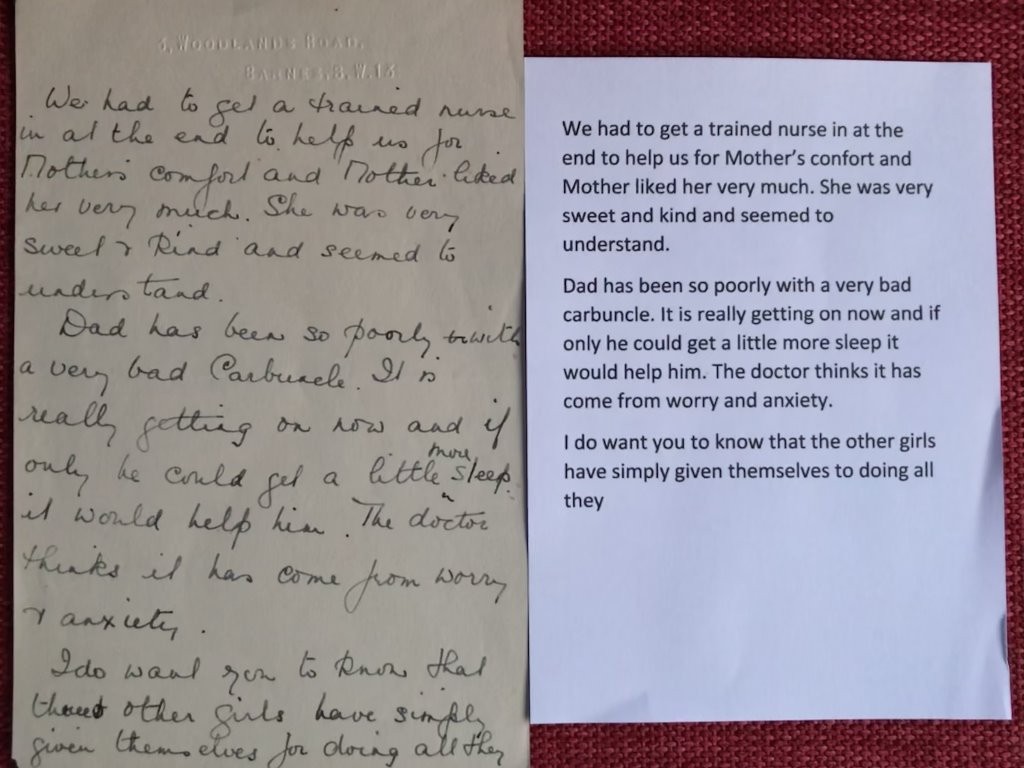 3, WOODLANDS ROAD,
BARNES, S.W.13
We had to get a trained nurse
in at the end to help us for
Mothers comfort and Mother liked
her very much. She was very
sweet & kind and seemed to
understand.
Dad has been so poorly with
a very bad Carbuncle. It is
really getting on now and if
only he could get a little more sleep
it would help him. The doctor
thinks it has come from worry
& anxiety.
I do want you to know that
other girls have simply
given themselves for doing all they
We had to get a trained nurse in at the
end to help us for Mother’s confort and
Mother liked her very much. She was very
sweet and kind and seemed to
understand.
Dad has been so poorly with a very bad
carbuncle. It is really getting on now and if
only he could get a little more sleep it
would help him. The doctor thinks it has
come from worry and anxiety.
I do want you to know that the other girls
have simply given themselves to doing all
they